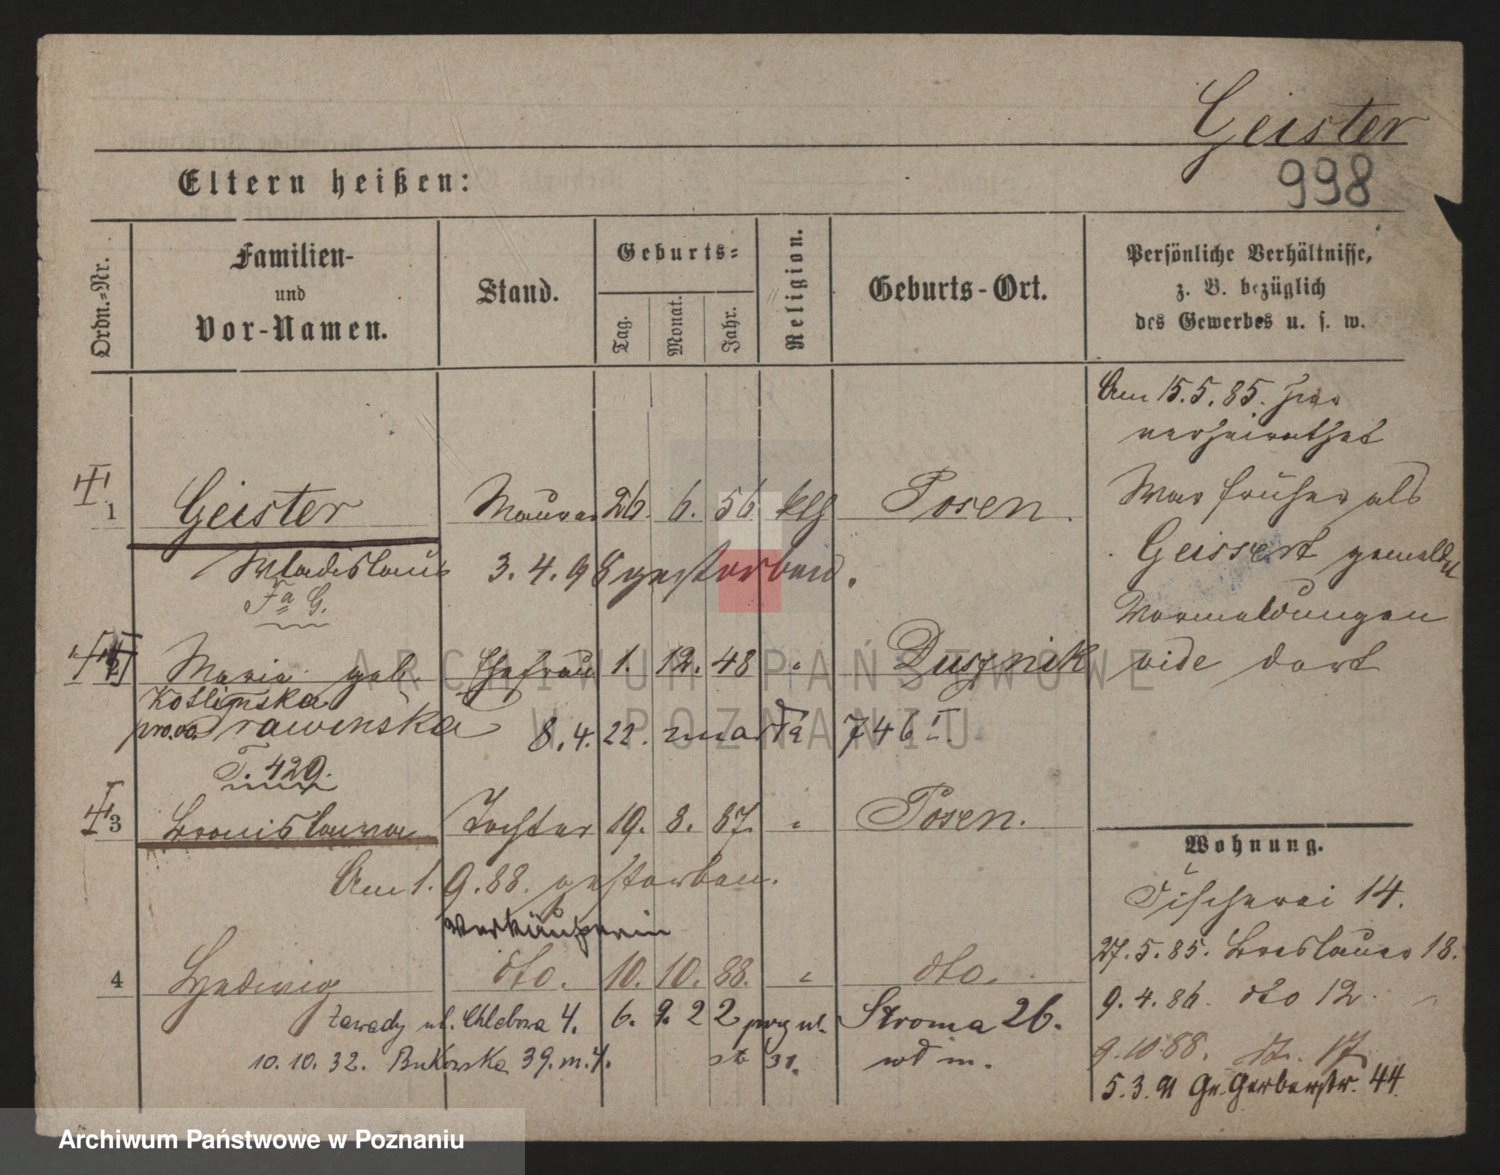 Geister
998
Eltern heißen:
Ordn.=Nr.
Familien-
und
Vor-Namen.
Stand.
Geburts=
Tag.
Monat.
Jahr.
Religion.
Geburts-Ort.
Persönliche Verhältnisse,
z. B. bezüglich
des Gewerbes u. s. w.
Am 15.5.85. hier
verheirathet
1 Geister Maurer 26. 6. 56 klg Posen.
War früher als
Geissert gemeldet
Wladislaus 3.4.98 gestorben.
Fa G.
Vormeldungen
2 Maria geb. Ehefrau 1. 12. 48 " Dusznik
vide dort
Koślinska
Drawenska 8.4.22. zmarła 746
T. 429.
3 Bronislawa Tochter 19. 8. 87. " Posen.
Wohnung.
Am 1. 9. 88. gestorben.
Fischerei 14.
Verkäuferin
27.5.85. Breslauer 18.
4 Hedwig dto. 10. 10. 88. " dto.
9.4.86. dto 12.
Zawady ul. Chlebowa 4. 6. 9. 22 przy ul. Stroma 26.
9.10.88. 17
10.10.32. Bukowska 39. m. 4.
5.3.91 Gr. Gerberstr. 44
ARCHIWUM PAŃSTWOWE
W POZNANIU
Archiwum Państwowe w Poznaniu